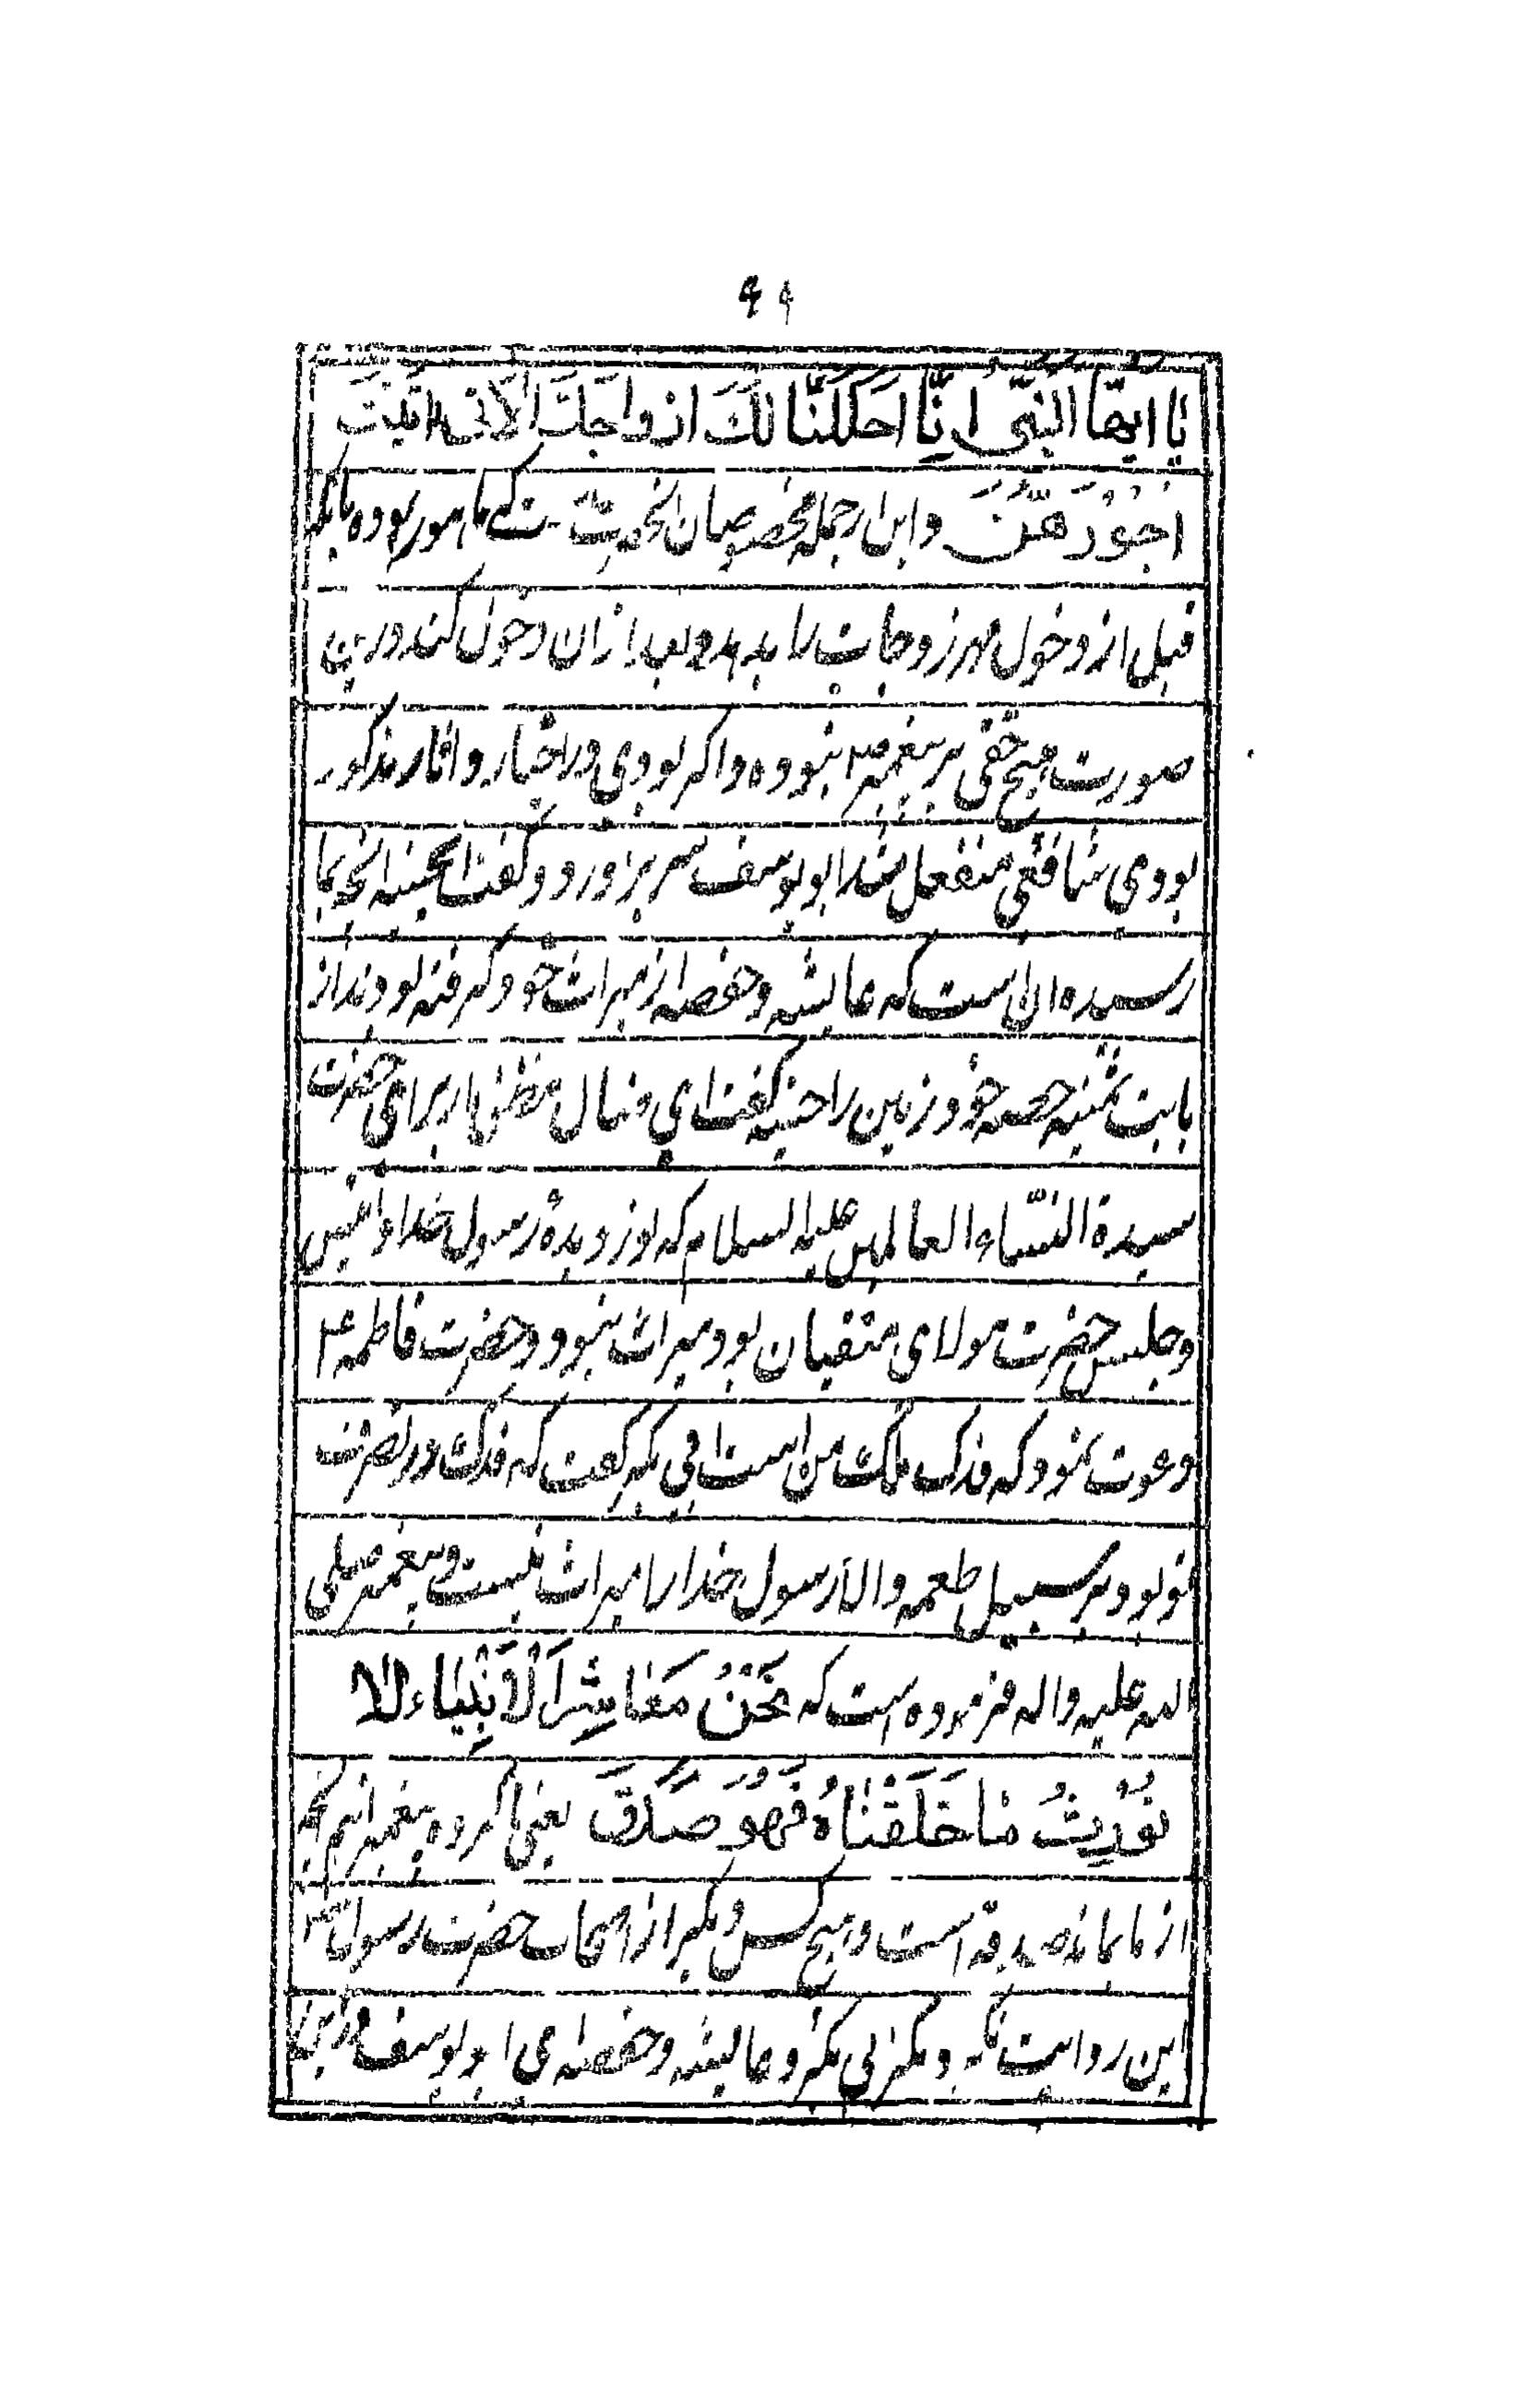 ۹۹
یا ایها النّبیّ انّا احللنا لک ازواجک الاتی اتیت
اجورهنّ و این از جمله مخصوصان آنحضرت است که مامور بوده بانکه
قبل از دخول مهر زوجات را بدهد و بعد از ان دخول کند درین
صورت هیچ حقی بر پیغمبر ص نبوده و اکر بودی در اخبار و اثار مذکور
بودی شافعی منفعل شد ابو یوسف سر براورد و کفت انچه بما
رسیده این است که عایشه و حفصه از میراث خود کرفته بودند از
بابت ثمنیه حصه خود زمین را حسنیه کفت ای ضال مضل یار برای حضرت
سیدة النّساء العالمین علیها السلام که نور دیده رسول خدا و انیس
و جلیس حضرت مولای متقیان بود میراث نبود و حضرت فاطمه ع
دعوت نمود که فدک ملک من است ابی بکر کفت که فدک در تصرف
تو بود بر سبیل طعمه و الا رسول خدا را میراث نیست و پیغمبر صلی
الله علیه و اله فرموده است که نحن معاشر الانبیاء لا
نورث ما خلقناه فهو صدق یعنی ما کروه پیغمبرانیم انچه
از ما ماند صدقه است و هیچ کس دیکر از اصحاب حضرت رسول ص
این روایت نکرد مکر ابی بکر و عایشه و حفصه ای ابو یوسف در این